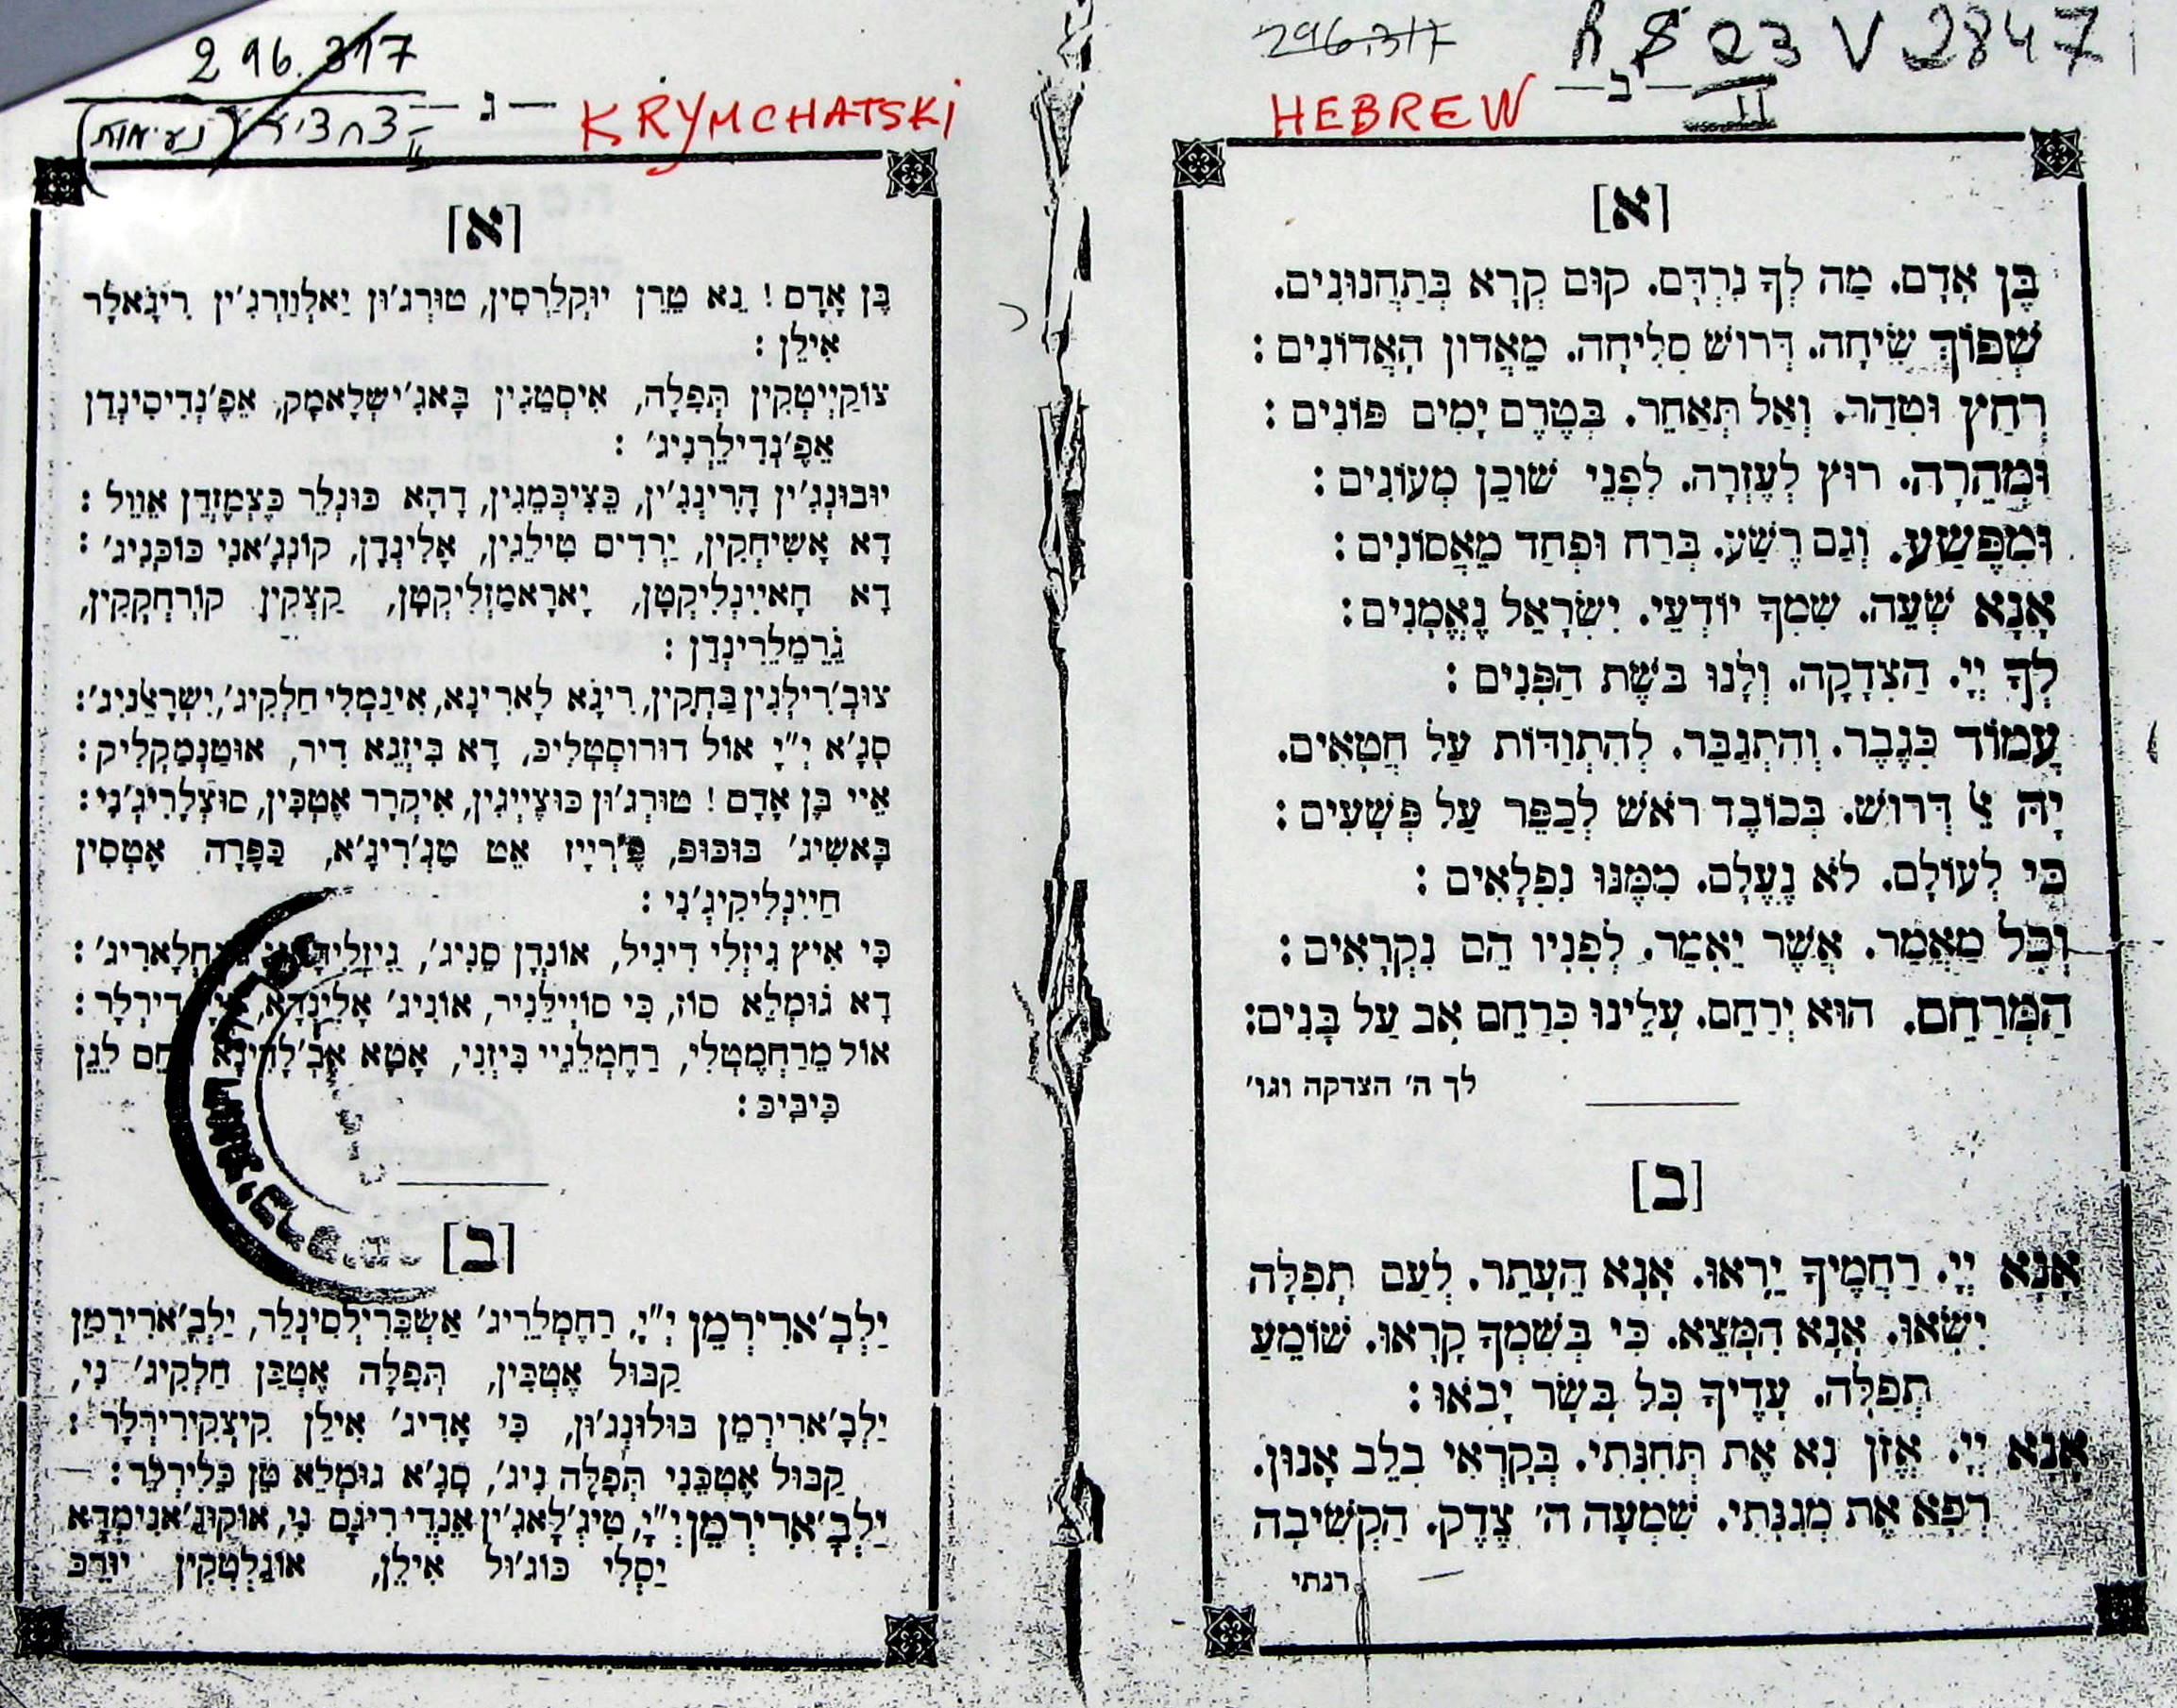 296.317
R $ 23 V 2847
II
HEBREW
—ב—
[א]
בֶּן אָדָם. מַה לְּךָ נִרְדָּם. קוּם קְרָא בְּתַחֲנוּנִים.
שְׁפוֹךְ שִׂיחָה. דְּרוֹשׁ סְלִיחָה. מֵאֲדוֹן הָאֲדוֹנִים:
רְחַץ וּטְהַר. וְאַל תְּאַחַר. בְּטֶרֶם יָמִים פּוֹנִים:
וּמְהֵרָה. רוּץ לְעֶזְרָה. לִפְנֵי שׁוֹכֵן מְעוֹנִים:
וּמִפֶּשַׁע. וְגַם רֶשַׁע. בְּרַח וּפְחַד מֵאֲסוֹנִים:
אָנָא שְׁעֵה. שִׁמְךָ יוֹדְעֵי. יִשְׂרָאֵל נֶאֱמָנִים:
לְךָ יְיָ. הַצְּדָקָה. וְלָנוּ בּשֶׁת הַפָּנִים:
עֲמוֹד כְּגֶבֶר. וְהִתְגַּבֵּר. לְהִתְוַדּוֹת עַל חֲטָאִים.
יָהּ אֵל דְּרוֹשׁ. בְּכוֹבֶד רֹאשׁ לְכַפֵּר עַל פְּשָׁעִים:
כִּי לְעוֹלָם. לֹא נֶעֱלָם. מִמֶּנּוּ נִפְלָאִים:
וְכָל מַאֲמָר. אֲשֶׁר יֵאָמַר. לְפָנָיו הֵם נִקְרָאִים:
הַמְּרַחֵם. הוּא יְרַחֵם. עָלֵינוּ כְּרַחֵם אָב עַל בָּנִים:
לך ה' הצדקה וגו'
[ב]
אָנָּא יְיָ. רַחֲמֶיךָ יֵרָאוּ. אָנָּא הֵעָתֵר. לְעַם תְּפִלָּה
יִשְׂאוּ. אָנָּא הִמָּצֵא. כִּי בְשִׁמְךָ קָרָאוּ. שׁוֹמֵעַ
תְּפִלָּה. עָדֶיךָ כָּל בָּשָׂר יָבֹאוּ:
אָנָּא יְיָ. אֱזֹן נָא אֶת תְּחִנָּתִי. בְּקָרְאִי בְלֵב אָנוּן.
רְפָא אֶת מְגִנָּתִי. שִׁמְעָה ה' צֶדֶק. הַקְשִׁיבָה
רנתי
296.317
—ג—
KRYMCHATSKI
[א]
בֶּן אָדָם! נֵא טֵרֶן יוּקְלַרְסִין, טוּרְג'וּן יַאלְוַורְגִ'ין רִיגָאלָר
אִילֵן:
צוֹקַיְיטְקִין תְּפִלָּה, אִיסְטַגִין בָּאגִ'ישְׁלָאמָק, אֵפֶ'נְדִיסִינְדַן
אֵפֶ'נְדִילֵרְנִיג':
יוּבוּנְגִ'ין הָרִינְגִ'ין, כֵּצִיכְּמֵגִין, דָהָא כּוּנְלֵר כֶּצְמֶזְדֵן אֵוֵול:
דָא אָשִׁיחְקִין, יַרְדִים טִילֵגִין, אָלִינְדָן, קוֹנְגָ'אנִי כּוֹכְּנִיג':
דָא חָאיְינְלִיקְטָן, יָארָאמַזְלִיקְטָן, קַצְקִין קוֹרְחָקְקִין,
גֵרֵמֵלֵרִינְדֵן:
צוּבְ'רִילְגִין בַּחְקִין, רִיגָא לָארִינָא, אִינַמְלִי חַלְקִיג', יִשְׂרָאֵלנִיג':
סָגָ'א יְ"יָ אוֹל דוּרוּסְטְלִיכּ, דָא בִּיזְגֵא דִיר, אוּטַנְמַקְלִיק:
אֵיי בֶּן אָדָם! טוּרְג'וּן כּוּצֵיְיגִין, אִיקְרָר אֶטְכִּין, סוּצְלָרִיגָ'נִי:
בָּאשִׁיג' בּוּכּוּפּ, פֵ'רְיָיז אֵט טַגְ'רִיגָ'א, כַּפָּרָה אֶטְסִין
חַיִינְלִיקִיגְ'נִי:
כִּי אִיץ גִיזְלִי דִיגִיל, אוֹנְדָן סֵנִיג',
דָא גוּמְלֵא סוֹז, כִּי סוֹיְילֵנִיר, אוֹנִיג' אָלִינְדָא,
אוֹל מֵרַחְמֶטְלִי, רַחֶמְלֵגֵיי בִּיזְנִי, אָטָא לֵגֵן
כִּיבִּיכּ:
[ב]
יַלְבָ'ארִירְמֵן יְ"יָ, רַחֶמְלֵרִיג' אַשְׁכַּרִילְסִינְלֵר, יַלְבָ'ארִירְמֵן
קַבּוּל אֶטְכִּין, תְּפִלָּה אֶטְכֵּן חַלְקִיג' נִי,
יַלְבָ'ארִירְמֵן בּוּלוּנְג'וּן, כִּי אָדִיג' אִילֵן קִיצְקִירִירְלָר:
קַבּוּל אֶטְכֶּנִי תְּפִלָּה נִיג', סָגָ'א גוּמְלֵא טֵן כֵּלִירְלֵר:
יַלְבָ'ארִירְמֵן יְ"יָ, טִיגְ'לָאגִ'ין אֵנְדֵי רִיגַם נִי, אוֹקוּגָ'אנִימְדָא
יַסְלִי כּוּג'וּל אִילֵן, אוֹגַלְטְקִין יוּרֵכּ